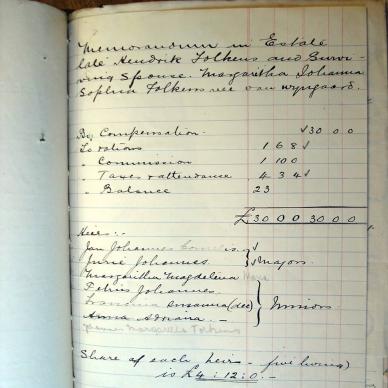 Memorandum in Estate
late Hendrik Folkens and Survi-
ving Spouse. Margaretha Johanna
Sophia Folkens nee van Wyngaard.
By Compensation - £30 0 0
To rations 1 6 8
" Commission 1 10 0
" Taxes & attendance 4 3 4
" Balance 23
£30 0 0 30 0 0
Heirs:-
Jan Johannes
Johannes } Majors
Margaritha Magdelena
Petrus Johannes
Susanna (dec) } Minors
Anna Adriana -
Margaretha Folkens
Share of each heir - five living)
is £4:12:0 -